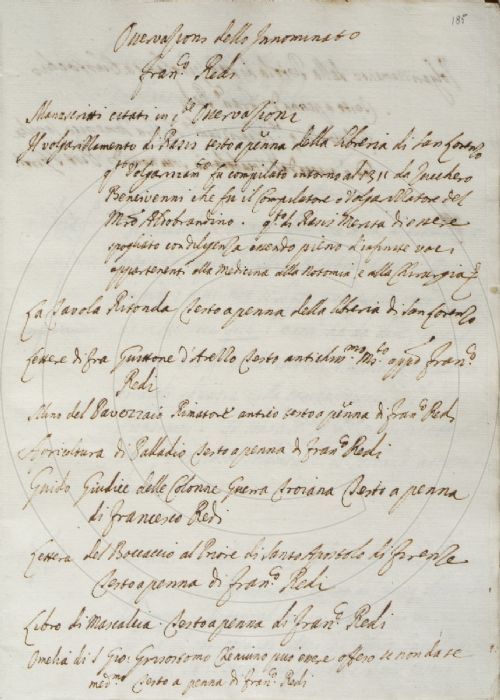 185
Osservazioni dello Innominato
Fran.co Redi
Manoscritti citati in q.te Osservazioni
Il volgarizzamento di Rasis testo a penna della libreria di San Lorenzo
q.to Volgarizzam.to fu compilato intorno al 1311 da Zucchero
Bencivenni che fu il Compilatore e Volgarizzatore del
M.ro Aldobrandino. q.to di Rasis Merita di essere
spogliato con diligenza essendo pieno d'infinite voci
appartenenti alla Medicina alla Notomia e alla Chirurgia
La Tavola Ritonda Testo a penna della libreria di San Lorenzo
Lettere di fra Guittone d'Arezzo Testo antichiss.mo M.s.to app.o Fran.co
Redi
Nuno del Pavezzaio Rimatore antico testo a penna di Fran.co Redi
Agricoltura di Palladio Testo a penna di Fran.co Redi
Guido Giudice delle Colonne Guerra Troiana Testo a penna
di Francesco Redi
Lettera del Boccaccio al Priore di Santo Apostolo di Firenze
Testo a penna di Fran.co Redi
Libro di Mascalcia Testo a penna di Fran.co Redi
Omelia di S Gio: Grisostomo che niuno può essere offeso se non da se
med.mo Testo a penna di Fran.co Redi